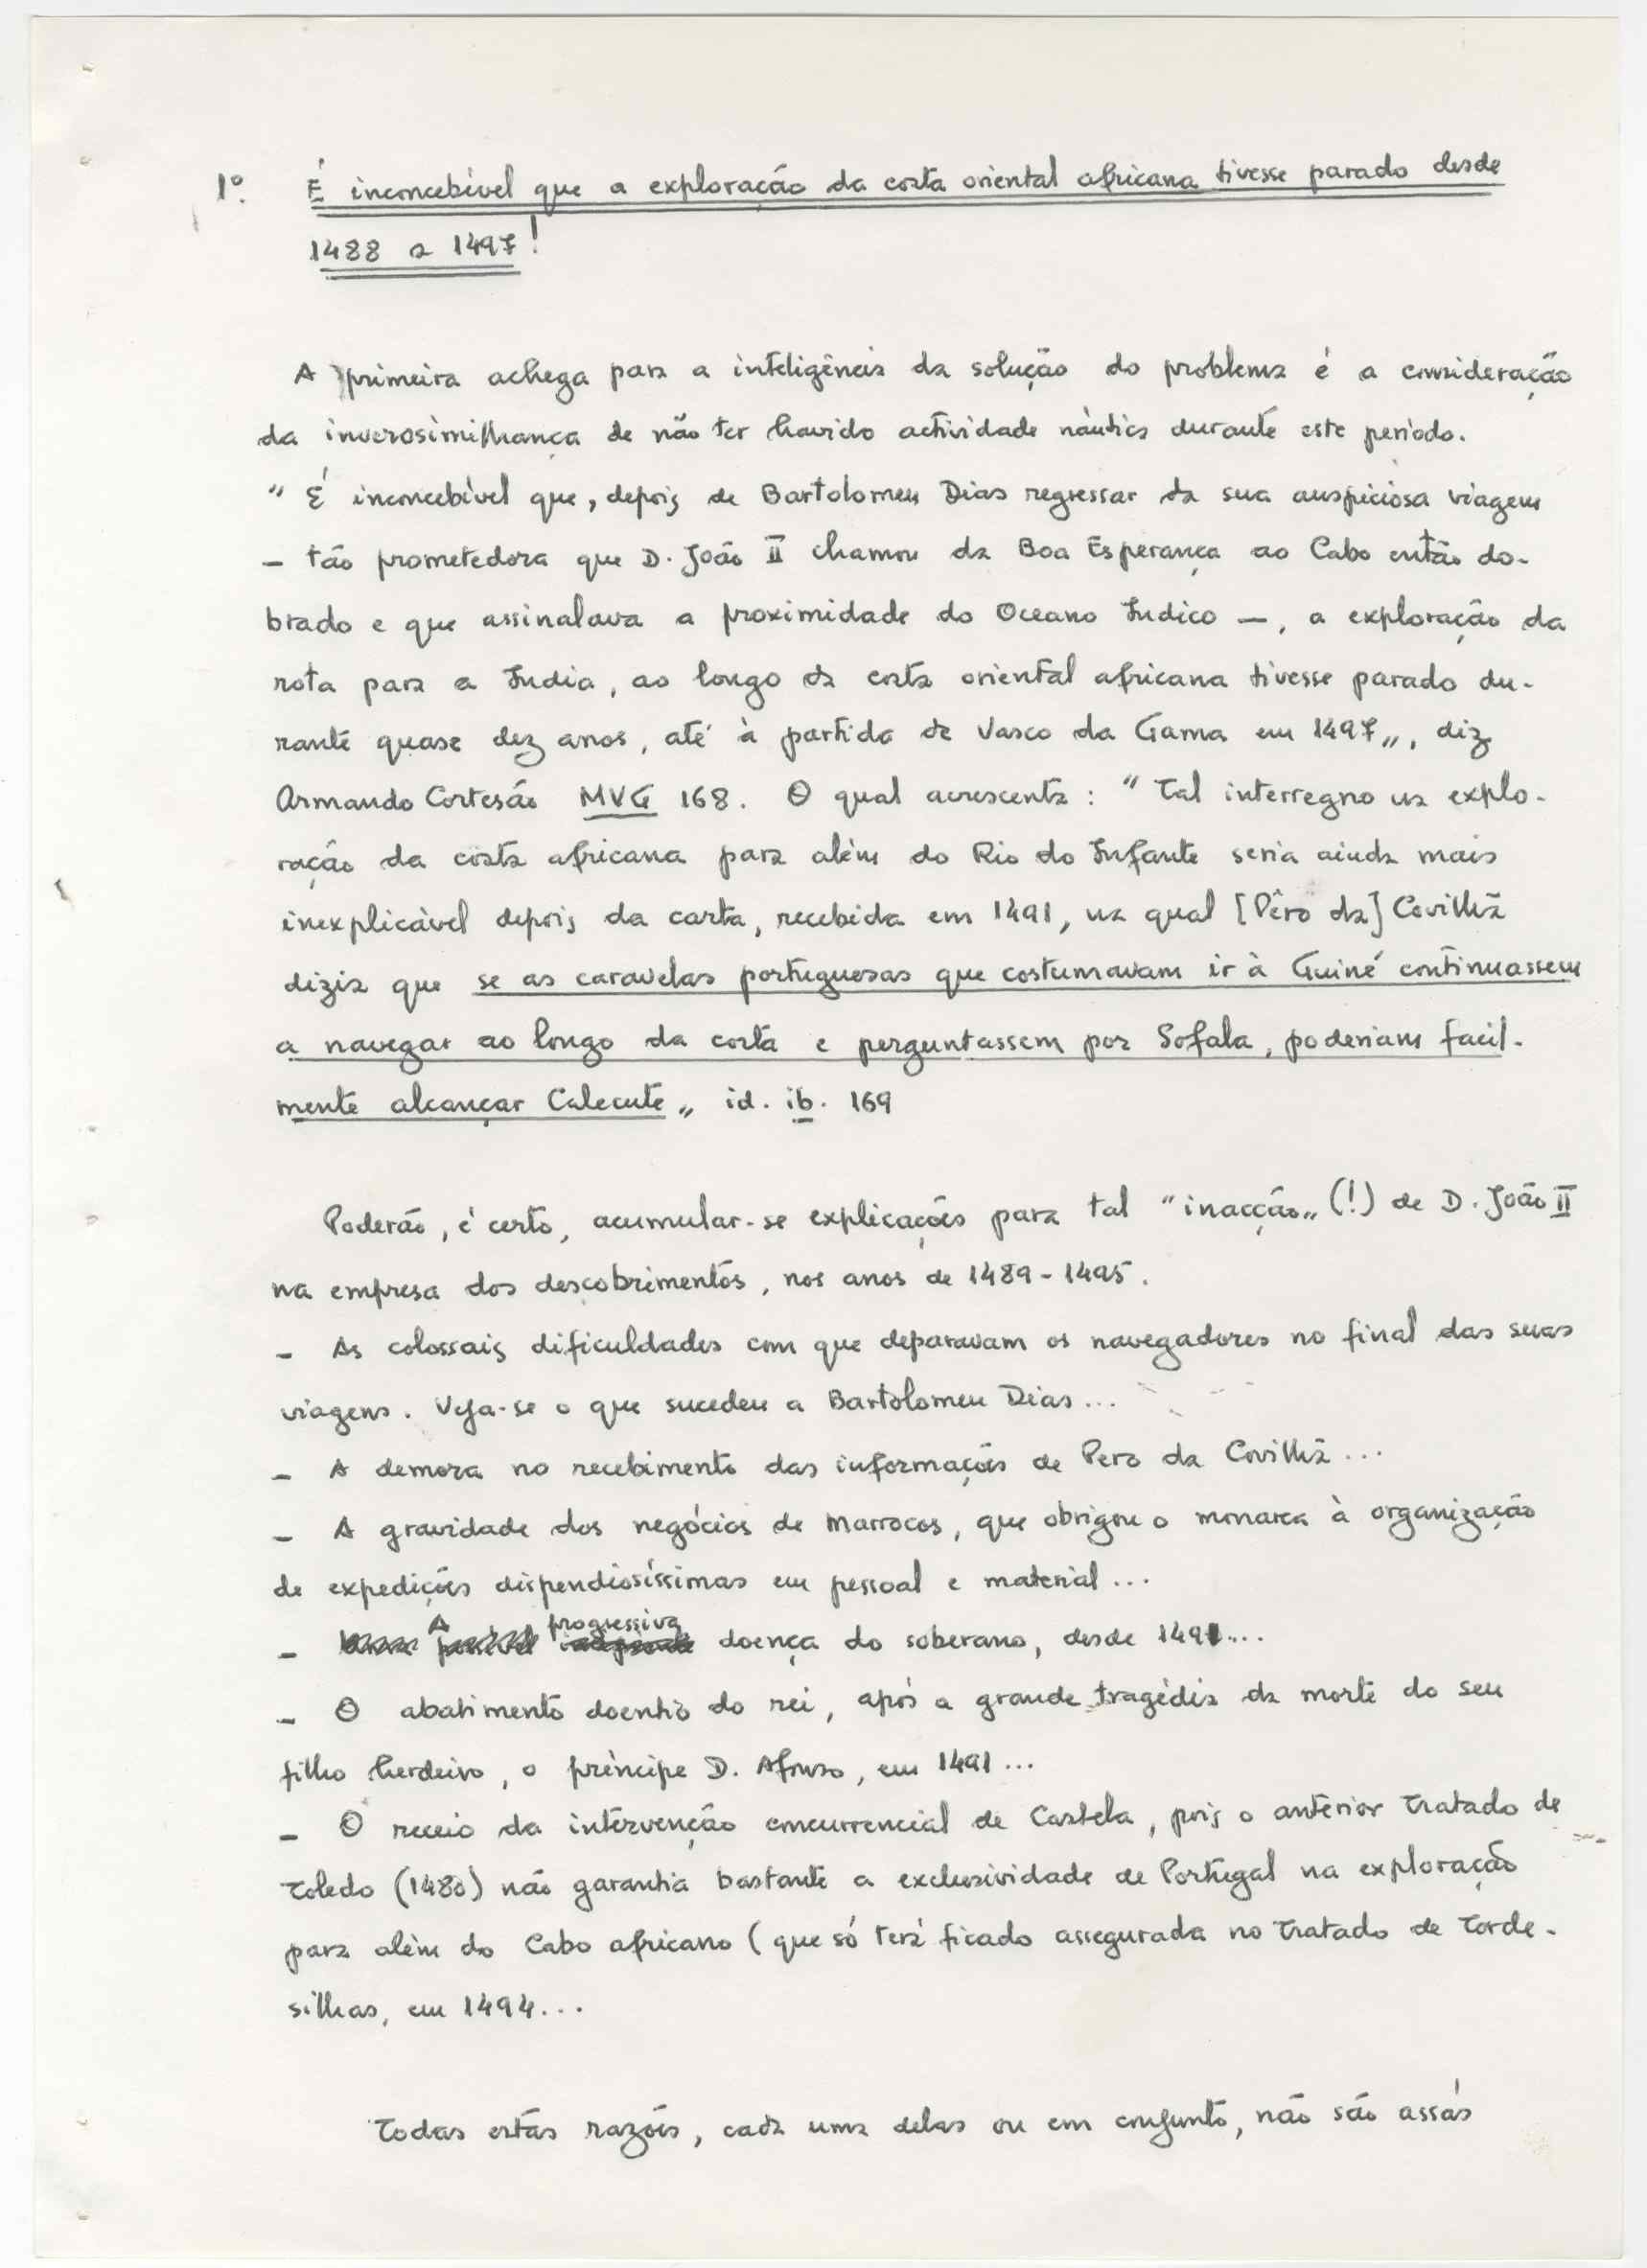 1º. É inconcebível que a exploração da costa oriental africana tivesse parado desde
1488 a 1497!
A primeira achega para a inteligência da solução do problema é a consideração
da inverosimilhança de não ter havido actividade náutica durante este período.
"É inconcebível que, depois de Bartolomeu Dias regressar da sua auspiciosa viagem
– tão prometedora que D. João II chamou da Boa Esperança ao Cabo então do-
brado e que assinalava a proximidade do Oceano Índico –, a exploração da
rota para a Índia, ao longo da costa oriental africana tivesse parado du-
rante quase dez anos, até à partida de Vasco da Gama em 1497", diz
Armando Cortesão MVG 168. O qual acrescenta: "Tal interregno na explo-
ração da costa africana para além do Rio do Infante seria ainda mais
inexplicável depois da carta, recebida em 1491, na qual [Pêro da] Covilhã
dizia que se as caravelas portuguesas que costumavam ir à Guiné continuassem
a navegar ao longo da costa e perguntassem por Sofala, poderiam facil-
mente alcançar Calecute" id. ib. 169
Poderão, é certo, acumular-se explicações para tal "inacção" (!) de D. João II
na empresa dos descobrimentos, nos anos de 1489-1495.
– As colossais dificuldades com que deparavam os navegadores no final das suas
viagens. Veja-se o que sucedeu a Bartolomeu Dias...
– A demora no recebimento das informações de Pero da Covilhã...
– A gravidade dos negócios de Marrocos, que obrigou o monarca à organização
de expedições dispendiosíssimas em pessoal e material...
– A progressiva doença do soberano, desde 1491...
– O abatimento doentio do rei, após a grande tragédia da morte do seu
filho herdeiro, o príncipe D. Afonso, em 1491...
– O receio da intervenção concurrencial de Castela, pois o anterior Tratado de
Toledo (1480) não garantia bastante a exclusividade de Portugal na exploração
para além do Cabo africano (que só terá ficado assegurada no Tratado de Torde-
silhas, em 1494...
Todas estas razões, cada uma delas ou em conjunto, não são assás